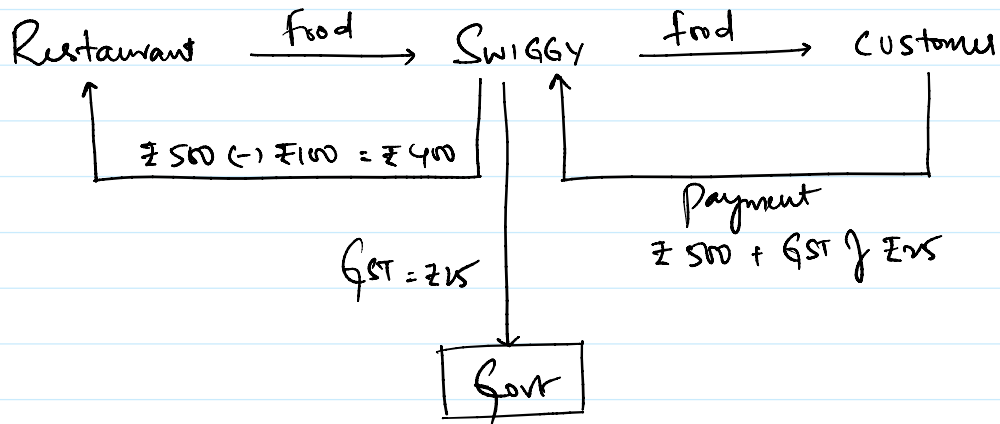 Restaurant food SWIGGY food Customer
₹ 500 (-) ₹100 = ₹ 400
Payment
₹ 500 + GST of ₹25
GST = ₹25
Govt